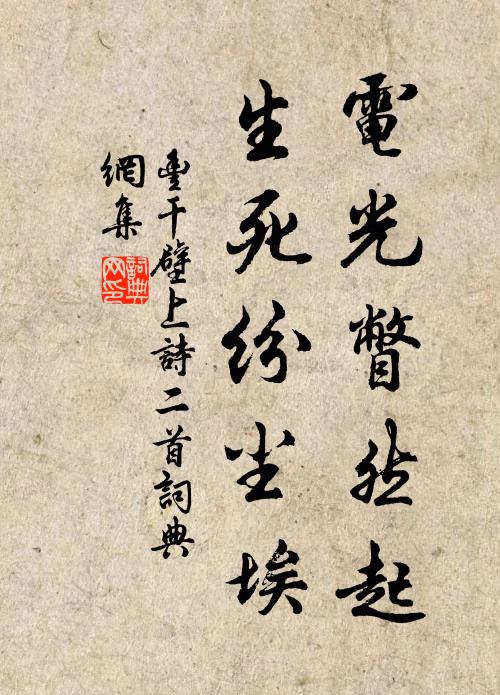 電光瞥然起
生死紛尘埃
豊干壁上詩二首詞典
網集
詞典
网印